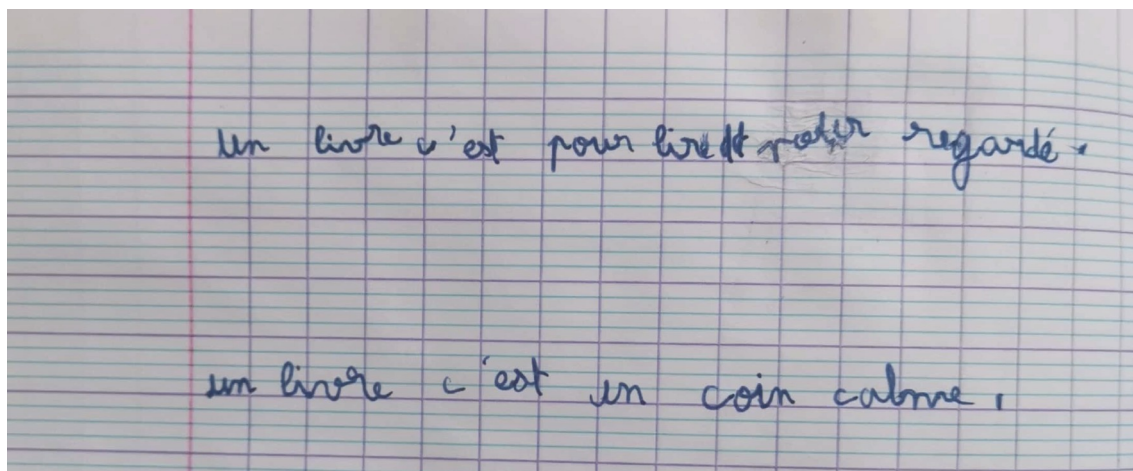 un livre c'est pour lire et regardé.
un livre c'est un coin calme.